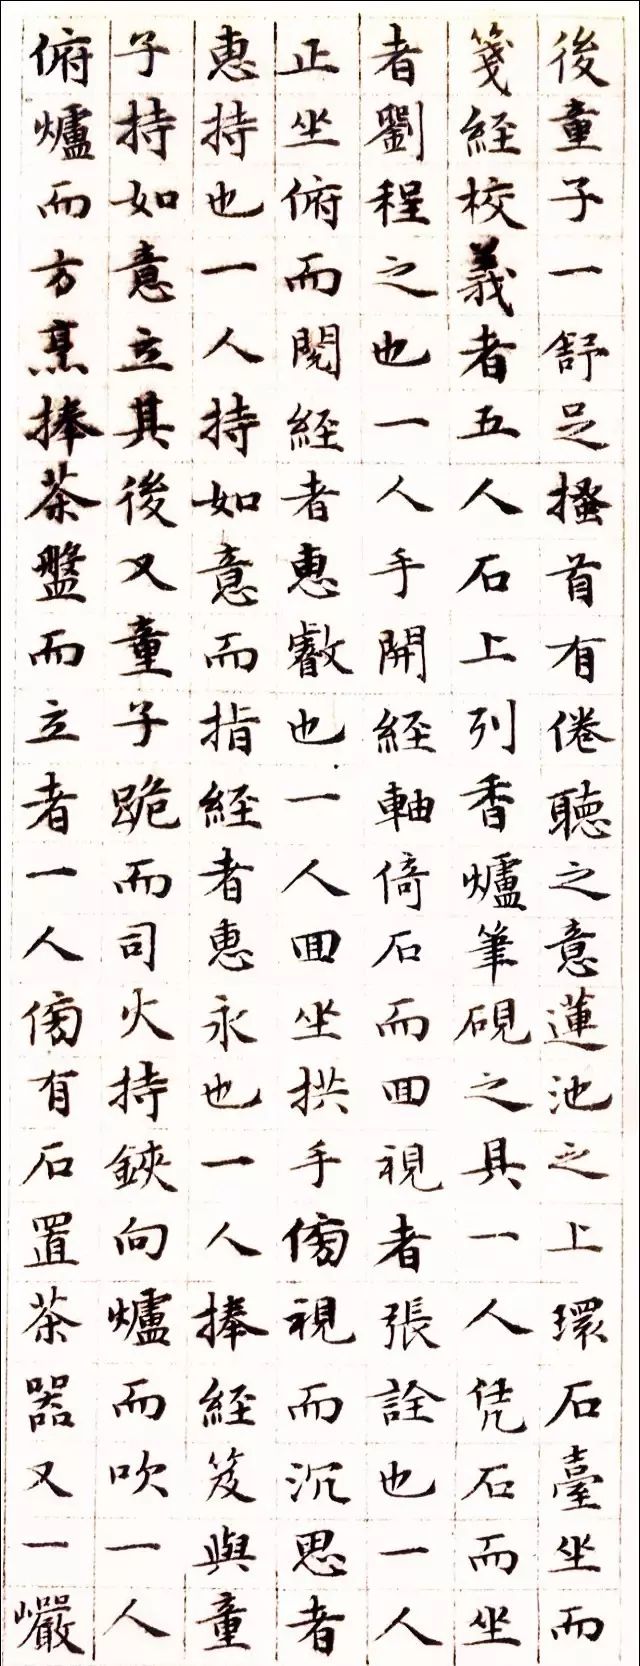 後童子一舒足搔首有倦聽之意蓮池之上環石臺坐而
箋經校義者五人石上列香爐筆硯之具一人凭石而坐
者劉程之也一人手開經軸倚石而囬視者張詮也一人
正坐俯而閱經者惠叡也一人囬坐拱手傍視而沉思者
惠持也一人持如意而指經者惠永也一人捧經笈與童
子持如意立其後又童子跪而司火持鋏向爐而吹一人
俯爐而方烹捧茶盤而立者一人傍有石置茶器又一巖